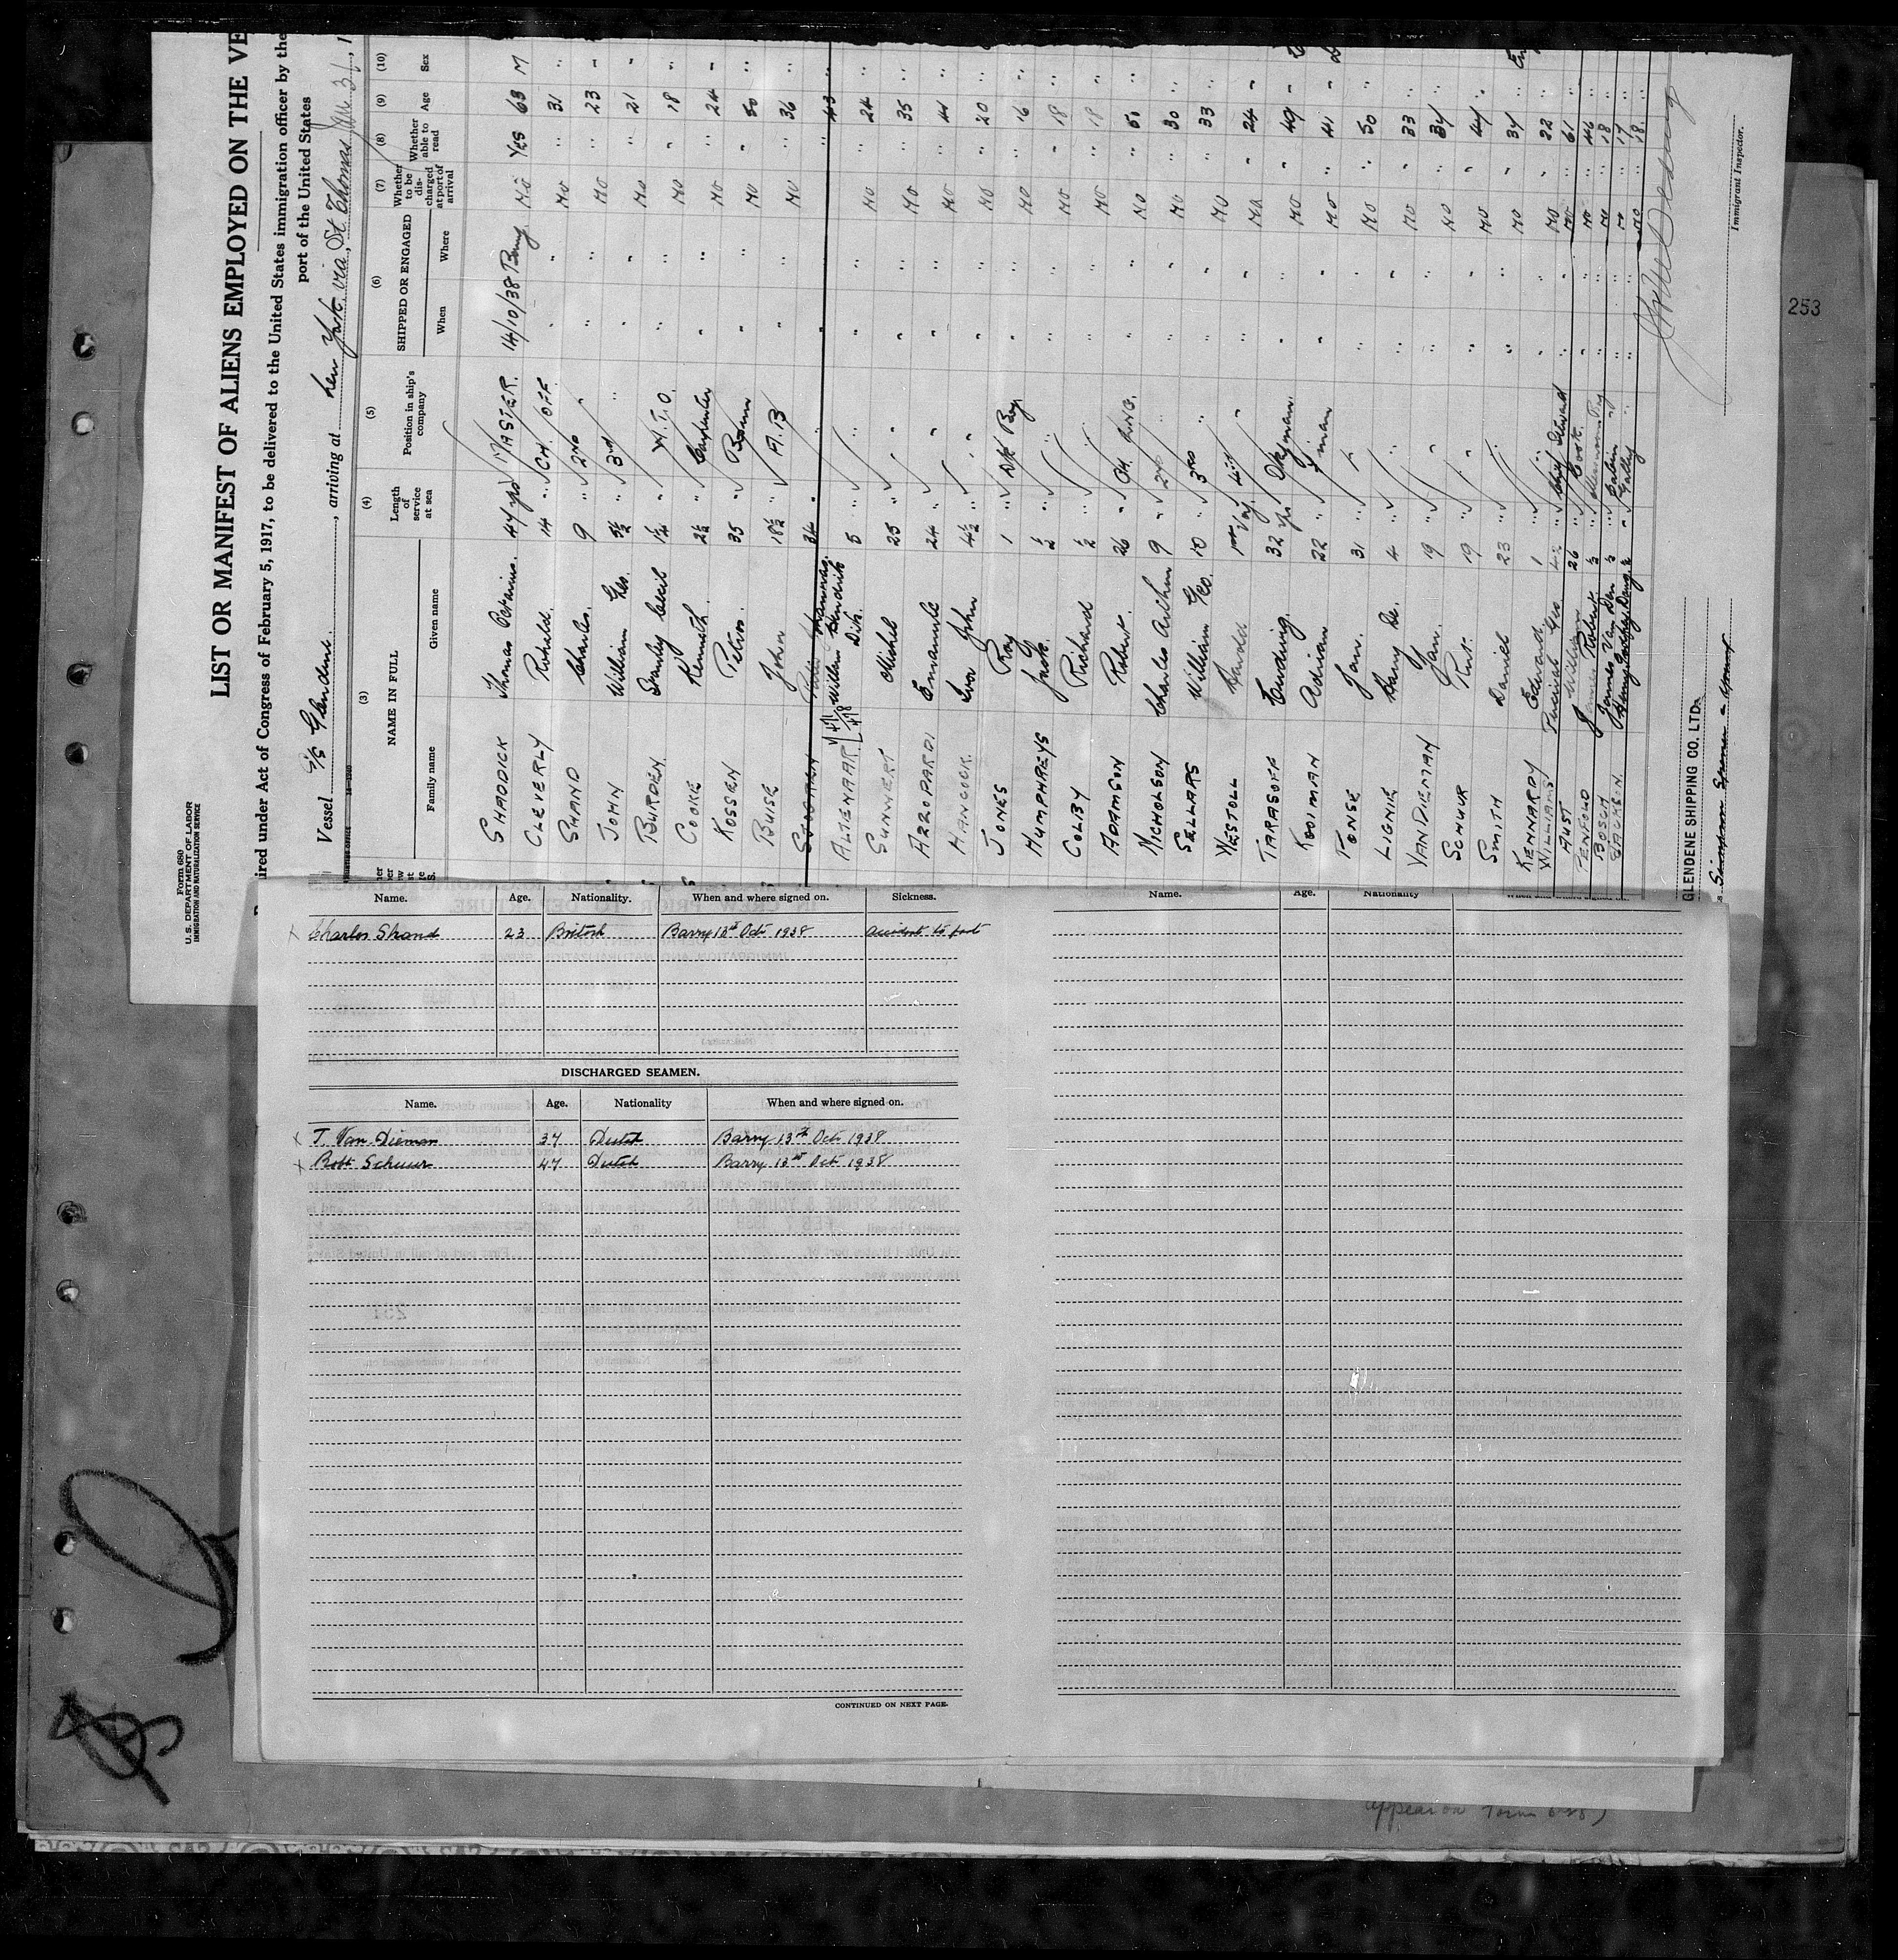 Form 680
U. S. DEPARTMENT OF LABOR
IMMIGRATION AND NATURALIZATION SERVICE
LIST OR MANIFEST OF ALIENS EMPLOYED ON THE VE
ired under Act of Congress of February 5, 1917, to be delivered to the United States immigration officer by the
port of the United States
Vessel S/S Glendene, arriving at New York via St Thomas Jan 31, 1
(3) (4) (5) (6) (7) (8) (9) (10)
NAME IN FULL Length of service at sea Position in ship's company SHIPPED OR ENGAGED Whether to be discharged at port of arrival Whether able to read Age Sex
Family name Given name When Where
SHADDICK Thomas 47 yrs MASTER. 14/10/38 Barry No YES 63 M
CLEVERLY Ronald. 14 " CH. OFF. " " No " 31 "
SHAND Charles. 9 " 2nd " " " No " 23 "
JOHN William Geo. 5½ " 3rd " " " No " 21 "
BURDEN. Stanley Cecil 1¼ " W.T.O. " " No " 18 "
COOKE Kenneth. 2½ " Carpenter " " No " 24 "
KOSSEN Petrus. 35 " Bosun " " No " 50 "
BUISE John 18½ " A.B " " No " 36 "
34 " " " 43 "
ALTENAAR Willem Hendrik Dik. 5 " " " " No " 24 "
SUNNERT Michel 25 " " " " No " 35 "
AZZOPARDI Emanuele 24 " " " " No " 41 "
HANCOCK. Ivor John 4½ " " " " No " 20 "
JONES Roy 1 " Dk Boy. " " No " 16 "
HUMPHREYS Jack. ½ " " " " No " 18 "
COLIBY Richard ½ " " " " No " 18 "
ADAMSON Robert. 26 " CH. ENG. " " No " 51 "
NICHOLSON Charles Arthur 9 " 2nd " " " No " 30 "
SELLARS William Geo. 10 " 3rd " " " No " 33 "
WESTOLL Harold 1st Voy. 4th " " " No " 24 "
TARASOFF 32 yrs Dkyman. " " No " 49 "
KOOIMAN Adrian 22 " F'man " " No " 41 "
FONSE Jan. 31 " " " " No " 50 "
LIGNIE Harry De. 4 " " " " No " 33 "
VAN DIEMAN Jan. 19 " " " " No " 34 "
SCHUUR 19 " " " " No " 47 "
SMITH Daniel 23 " " " " No " 34 "
KENNARDY Edward. 1 " " " " No " 22 "
WILLIAMS. Percival Geo 42 " Chf Steward " " No " 61 "
AUST William 26 " Cook. " " No " 46 "
PENFOLD James Robert. ½ " " " No " 18 "
BOSCH James Van Den ½ " Cabin " " " No " 17 "
JACKSON. ½ " Galley " " " No " 18 "
GLENDENE SHIPPING CO. LTD.
Simpson Spence & Young
Immigrant Inspector.
253
Name. Age. Nationality. When and where signed on. Sickness.
x Charles Shand 23 British Barry 13th Oct 1938 accident to foot
DISCHARGED SEAMEN.
Name. Age. Nationality When and where signed on.
x J. Van Dieman 34 Dutch Barry 13th Oct 1938
x Robt Schuur 47 Dutch Barry 13th Oct 1938
CONTINUED ON NEXT PAGE.
Name. Age. Nationality
appear on Form 680)